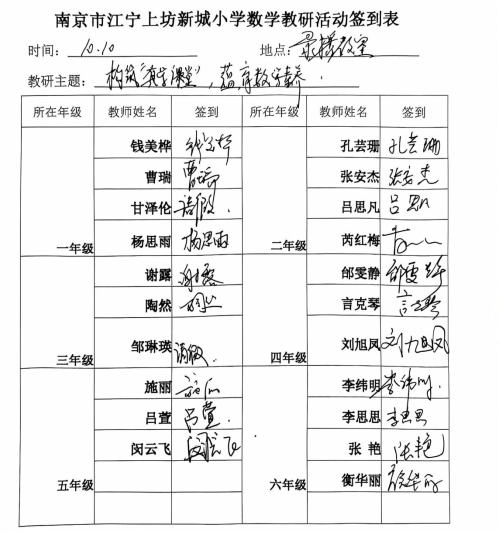 南京市江宁上坊新城小学数学教研活动签到表
时间： 10.10 地点：录播教室
教研主题： 构筑“真学课堂”，蕴育数学素养
所在年级 教师姓名 签到 所在年级 教师姓名 签到
钱美桦 钱美桦 孔芸珊 孔芸珊
曹瑞 曹瑞 张安杰 张安杰
甘泽伦 请假 吕思凡 吕思凡
一年级 杨思雨 杨思雨 二年级 芮红梅
谢露 谢露 邰雯静 邰雯静
陶然 言克琴 言克琴
三年级 邹琳瑛 请假 四年级 刘旭凤 刘旭凤
施丽 施丽 李纬明 李纬明
吕萱 吕萱 李思思 李思思
闵云飞 闵云飞 张 艳 张艳
五年级 六年级 衡华丽 衡华丽